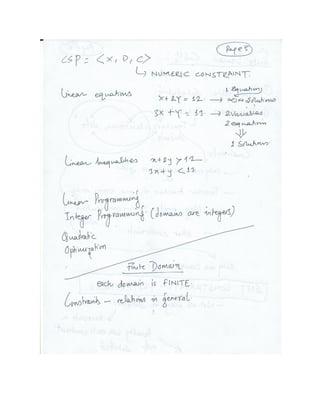 Page 5
CSP = <X, D, C>
↳ NUMERIC CONSTRAINT.
Linear equations
1 equation,
x + 2y = 12 → ∞ Solutions
3x + y = 11 → 2 variables
2 equations
⇓
1 Solution
Linear Inequalities x+2y > 12
3x+y < 11
Linear Programming
Integer Programming (domains are integers)
Quadratic
Optimization
Finite Domain
Each domain is FINITE.
Constraints – relations in general